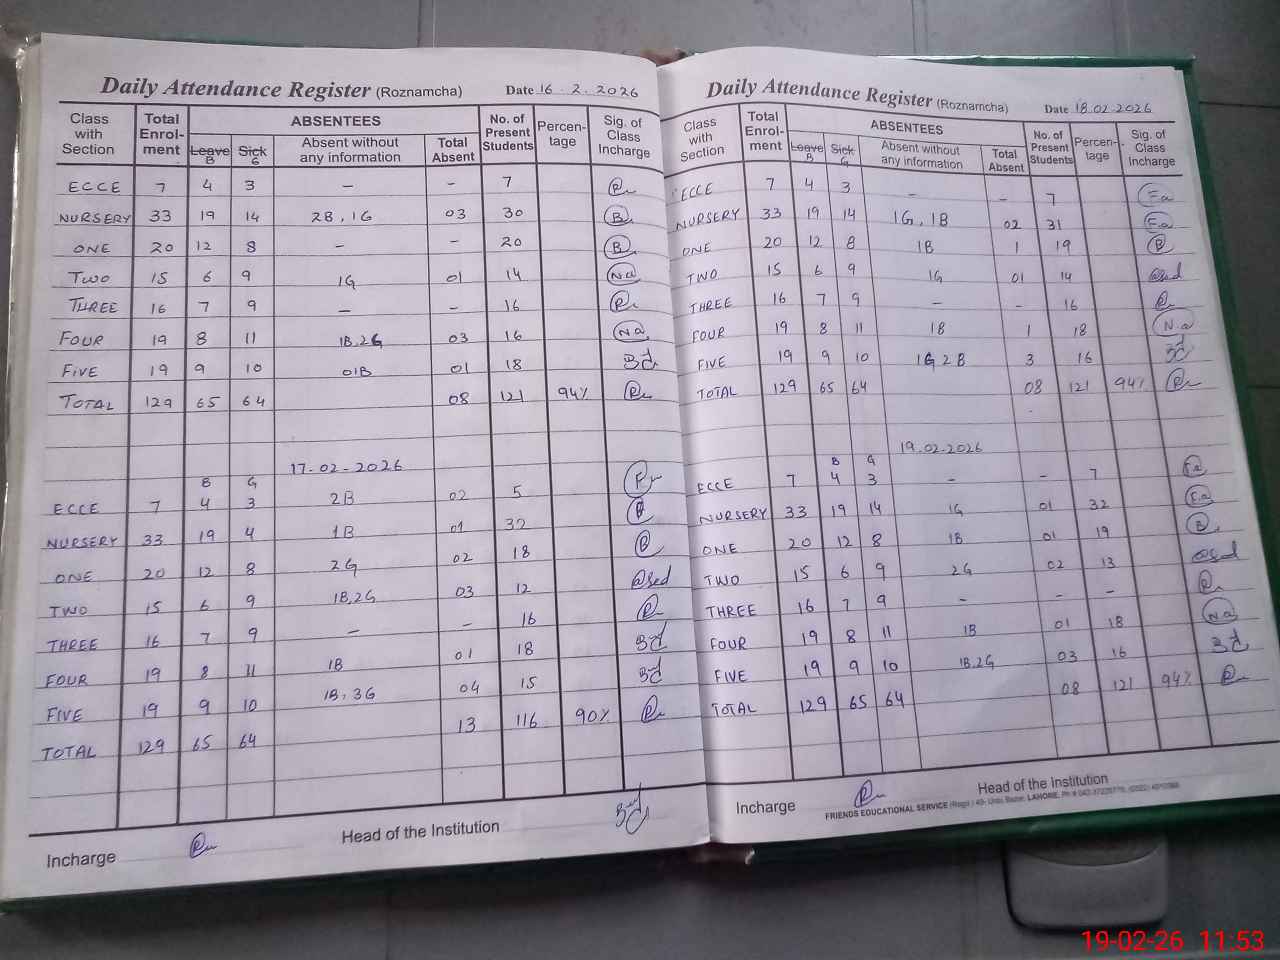 Daily Attendance Register (Roznamcha) Date 16.2.2026
Class with Section Total Enrol-ment ABSENTEES No. of Present Students Percen-tage Sig. of Class Incharge
Leave B Sick G Absent without any information Total Absent
ECCE 7 4 3 – – 7
NURSERY 33 19 14 2B, 1G 03 30 B
ONE 20 12 8 – – 20 B
TWO 15 6 9 1G 01 14 Na
THREE 16 7 9 – – 16
FOUR 19 8 11 1B, 2G 03 16 Na
FIVE 19 9 10 01B 01 18
TOTAL 129 65 64 08 121 94%
17-02-2026
B G
ECCE 7 4 3 2B 02 5
NURSERY 33 19 4 1B 01 32
ONE 20 12 8 2G 02 18 B
TWO 15 6 9 1B, 2G 03 12
THREE 16 7 9 – – 16
FOUR 19 8 11 1B 01 18
FIVE 19 9 10 1B, 3G 04 15
TOTAL 129 65 64 13 116 90%
Incharge Head of the Institution
Daily Attendance Register (Roznamcha) Date 18.02.2026
Class with Section Total Enrol-ment ABSENTEES No. of Present Students Percen-tage Sig. of Class Incharge
Leave B Sick G Absent without any information Total Absent
ECCE 7 4 3 – – 7 Fa
NURSERY 33 19 14 1G, 1B 02 31 Fa
ONE 20 12 8 1B 1 19 B
TWO 15 6 9 1G 01 14
THREE 16 7 9 – – 16
FOUR 19 8 11 1B 1 18 Na
FIVE 19 9 10 1G 2B 3 16
TOTAL 129 65 64 08 121 94%
19.02.2026
B G
ECCE 7 4 3 – – 7 Fa
NURSERY 33 19 14 1G 01 32 Fa
ONE 20 12 8 1B 01 19 B
TWO 15 6 9 2G 02 13
THREE 16 7 9 – – –
FOUR 19 8 11 1B 01 18 Na
FIVE 19 9 10 1B, 2G 03 16
TOTAL 129 65 64 08 121 94%
Incharge Head of the Institution
FRIENDS EDUCATIONAL SERVICE (Regd.) 40- Urdu Bazar, LAHORE.
19-02-26 11:53